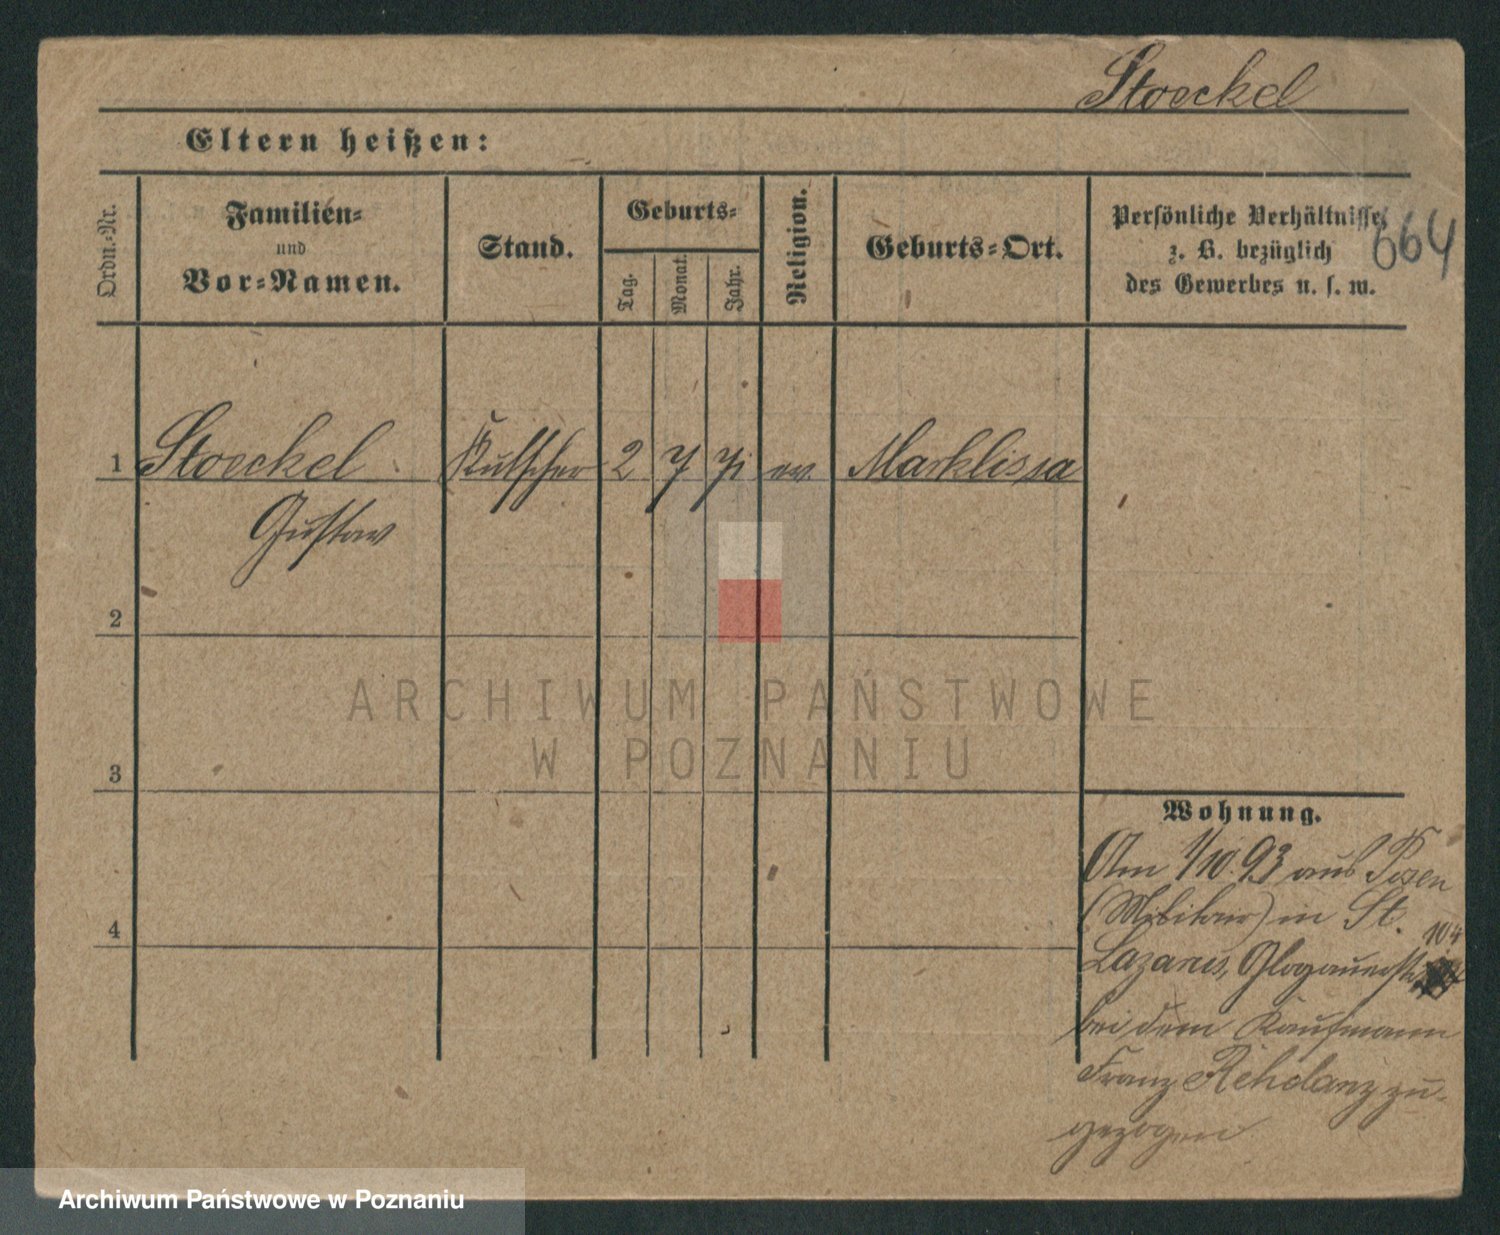 Stoeckel
Eltern heißen:
Ordn.-Nr.
Familien-
und
Vor-Namen.
Stand.
Geburts-
Tag.
Monat.
Jahr.
Religion.
Geburts-Ort.
Persönliche Verhältnisse
z. B. bezüglich
des Gewerbes u. s. w.
664
1 Stoeckel Kutscher 2 7 71 ev. Marklissa
Gustav
2
3
4
ARCHIWUM PAŃSTWOWE
W POZNANIU
Wohnung.
Am 1/10. 93 aus Posen
(Militair) in St.
Lazarus, Glogauerstr. 104
bei dem Kaufmann
Franz Rehdanz zu-
gezogen
Archiwum Państwowe w Poznaniu